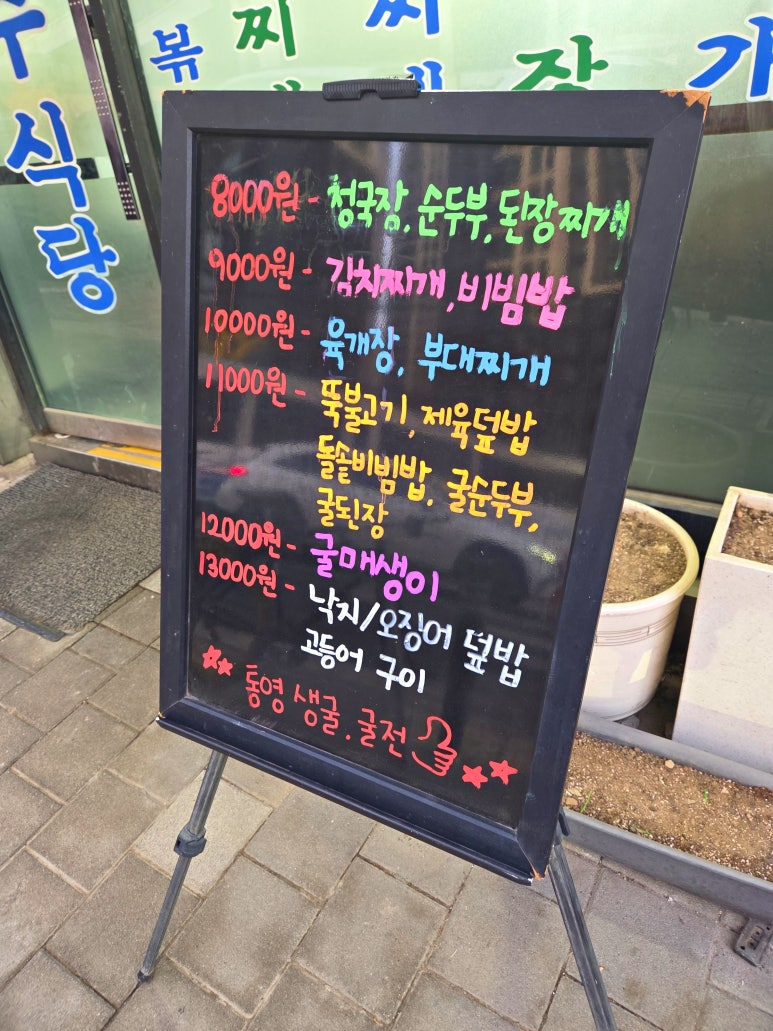 식당
볶
찌
찌
장
가
8000원 - 청국장, 순두부, 된장찌개
9000원 - 김치찌개, 비빔밥
10000원 - 육개장, 부대찌개
11000원 - 뚝불고기, 제육덮밥
돌솥비빔밥, 굴순두부,
굴된장
12000원 - 굴매생이
13000원 - 낙지/오징어 덮밥
고등어 구이
통영 생굴. 굴전